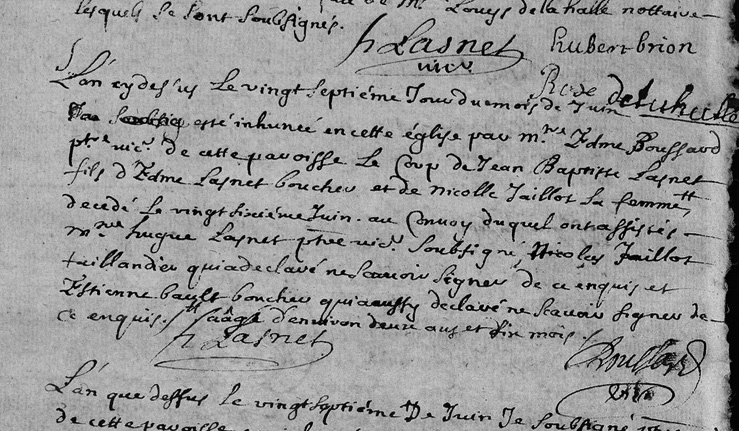 lesquels se sont soubsignés. de Mr Louys de la halle nottaire
h Lasnet hubert brion
vicr
Rose delahalle
L'an cy dessus Le vingt septiéme Jour du mois de Juin
esté inhumé en cette église par mre Edme Boussard
ptre vicr de cette paroisse Le Corp de Jean Baptiste Lasnet
fils d'Edme Lasnet boucher et de Nicolle Jaillot sa femme
decedé Le vingt sixiéme Juin au Convoy duquel ont assistés
mre hugue Lasnet ptre vicr soubsigné, Nicolas Jaillot
taillandier qui a declaré ne scavoir signer de ce enquis et
Estienne bault boucher qui a aussy declaré ne scavoir signer de
ce enquis. aâgé d'environ deux ans et six mois.
h Lasnet Boussard
vicr
L'an que dessus le vingt septiéme de Juin Je soubsigné ptre
de cette paroisse